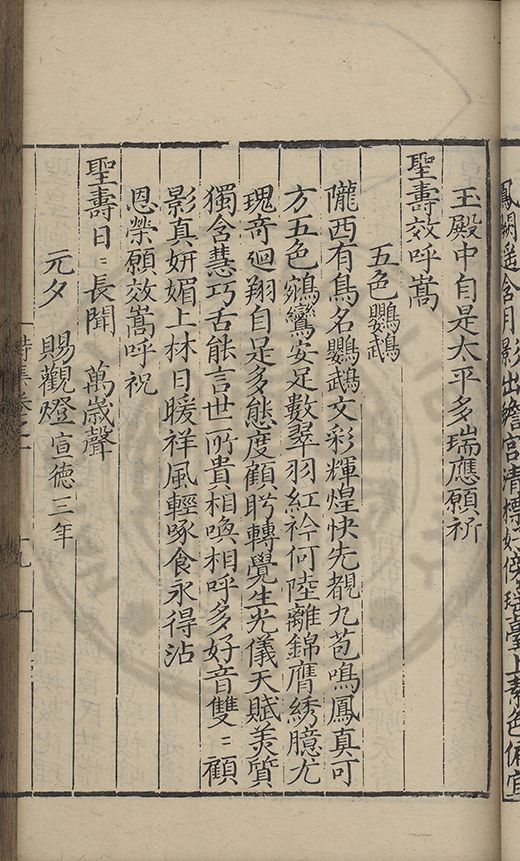 玉殿中自是太平多瑞應願祈
聖壽效呼嵩
五色鸚鵡
隴西有鳥名鸚鵡文彩輝煌快先覩九苞鳴鳳真可
方五色鵷鸞安足數翠羽紅衿何陸離錦膺綉臆尤
瑰奇迴翔自足多態度顧眄轉覺生光儀天賦美質
獨含慧巧舌能言世所貴相喚相呼多好音雙〻顧
影真妍媚上林日暖祥風輕啄食永得沾
恩榮願效嵩呼祝
聖壽日〻長聞　萬歲聲
元夕　賜觀燈宣德三年